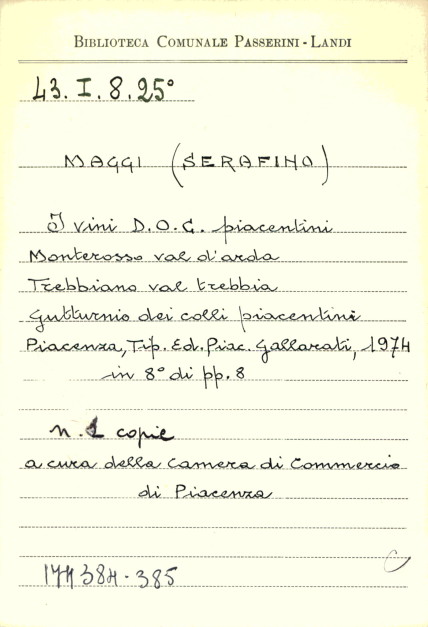 BIBLIOTECA COMUNALE PASSERINI-LANDI
43. I. 8. 25°
MAGGI (SERAFINO)
I vini D.O.C. piacentini
Monterosso val d'arda
Trebbiano val trebbia
Gutturnio dei colli piacentini
Piacenza, Tip. Ed. Piac. Gallarati, 1974
in 8° di pp. 8
n. 2 copie
a cura della Camera di Commercio
di Piacenza
177384-385
C